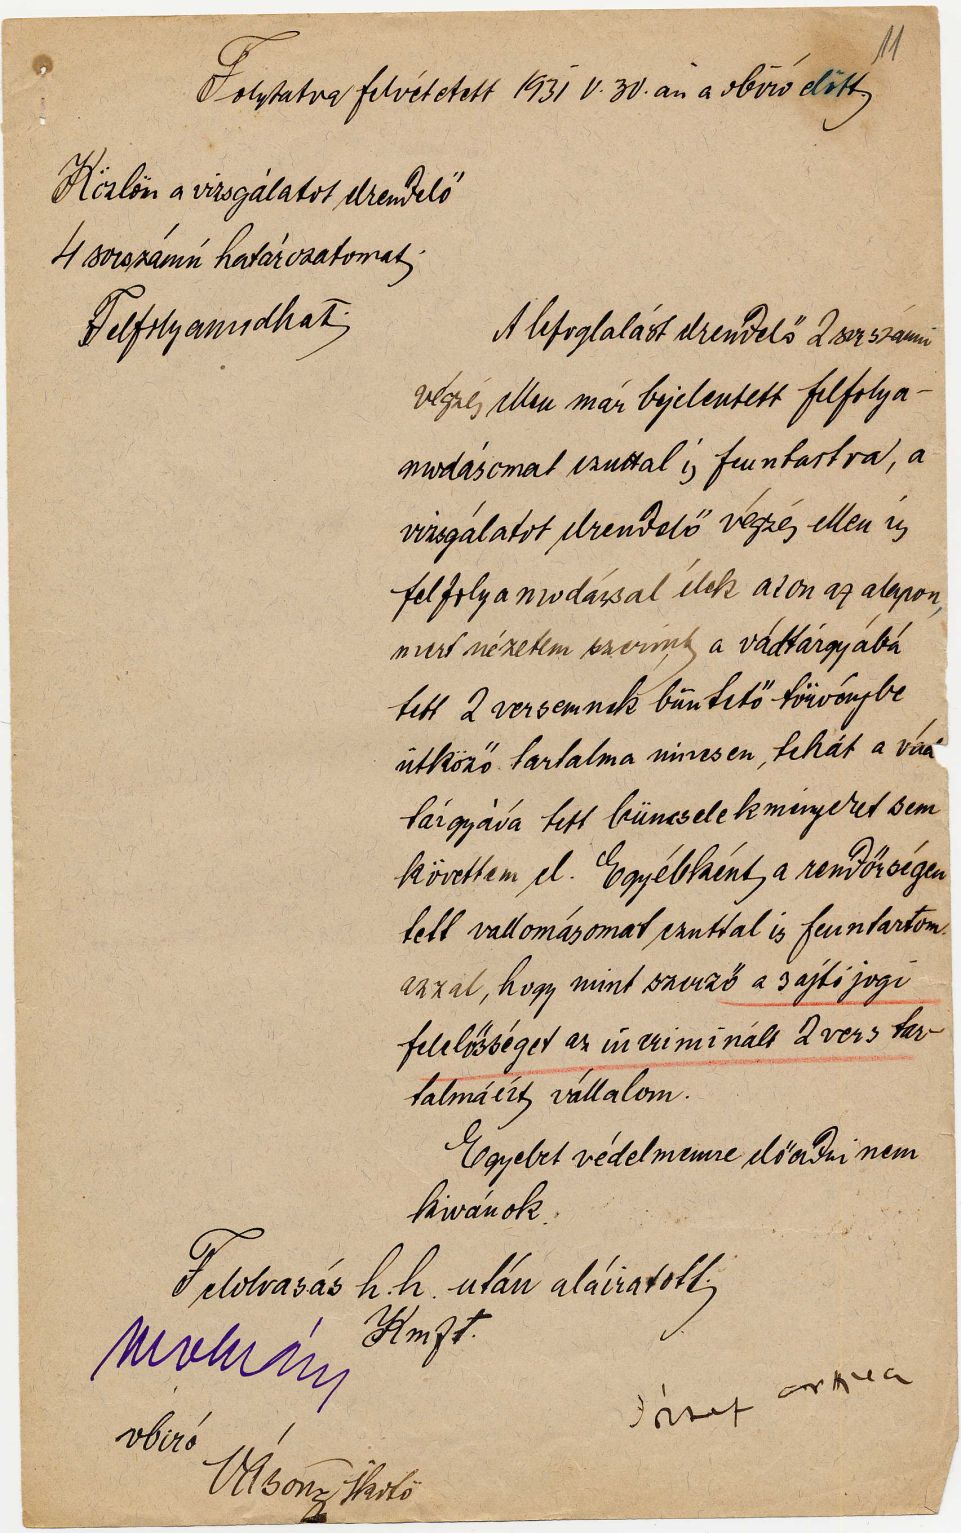 11
Folytatva felvétetett 1931 V. 30.-án a vbíró előtt.
Közlöm a vizsgálatot elrendelő
4 sorszámú határozatomat.
Felfolyamodhat.
A lefoglalást elrendelő 2 sorszámú
végzés ellen már bejelentett felfolya-
modásomat ezuttal is fenntartva, a
vizsgálatot elrendelő végzés ellen is
felfolyamodással élek azon az alapon,
mert nézetem szerint a vád tárgyábá
tett 2 versemnek büntető törvénybe
ütköző tartalma nincsen, tehát a vád
tárgyáva tett büncselekményeket sem
követtem el. Egyébként a rendőrségen
tett vallomásomat ezuttal is fenntartom
azzal, hogy mint szerző a sajtójogi
felelősséget az incriminált 2 vers tar-
talmáért vállalom.
Egyebet védelmemre előadni nem
kivánok.
Felolvasás h.h. után aláiratott.
Kmft.
József Attila
vbiró